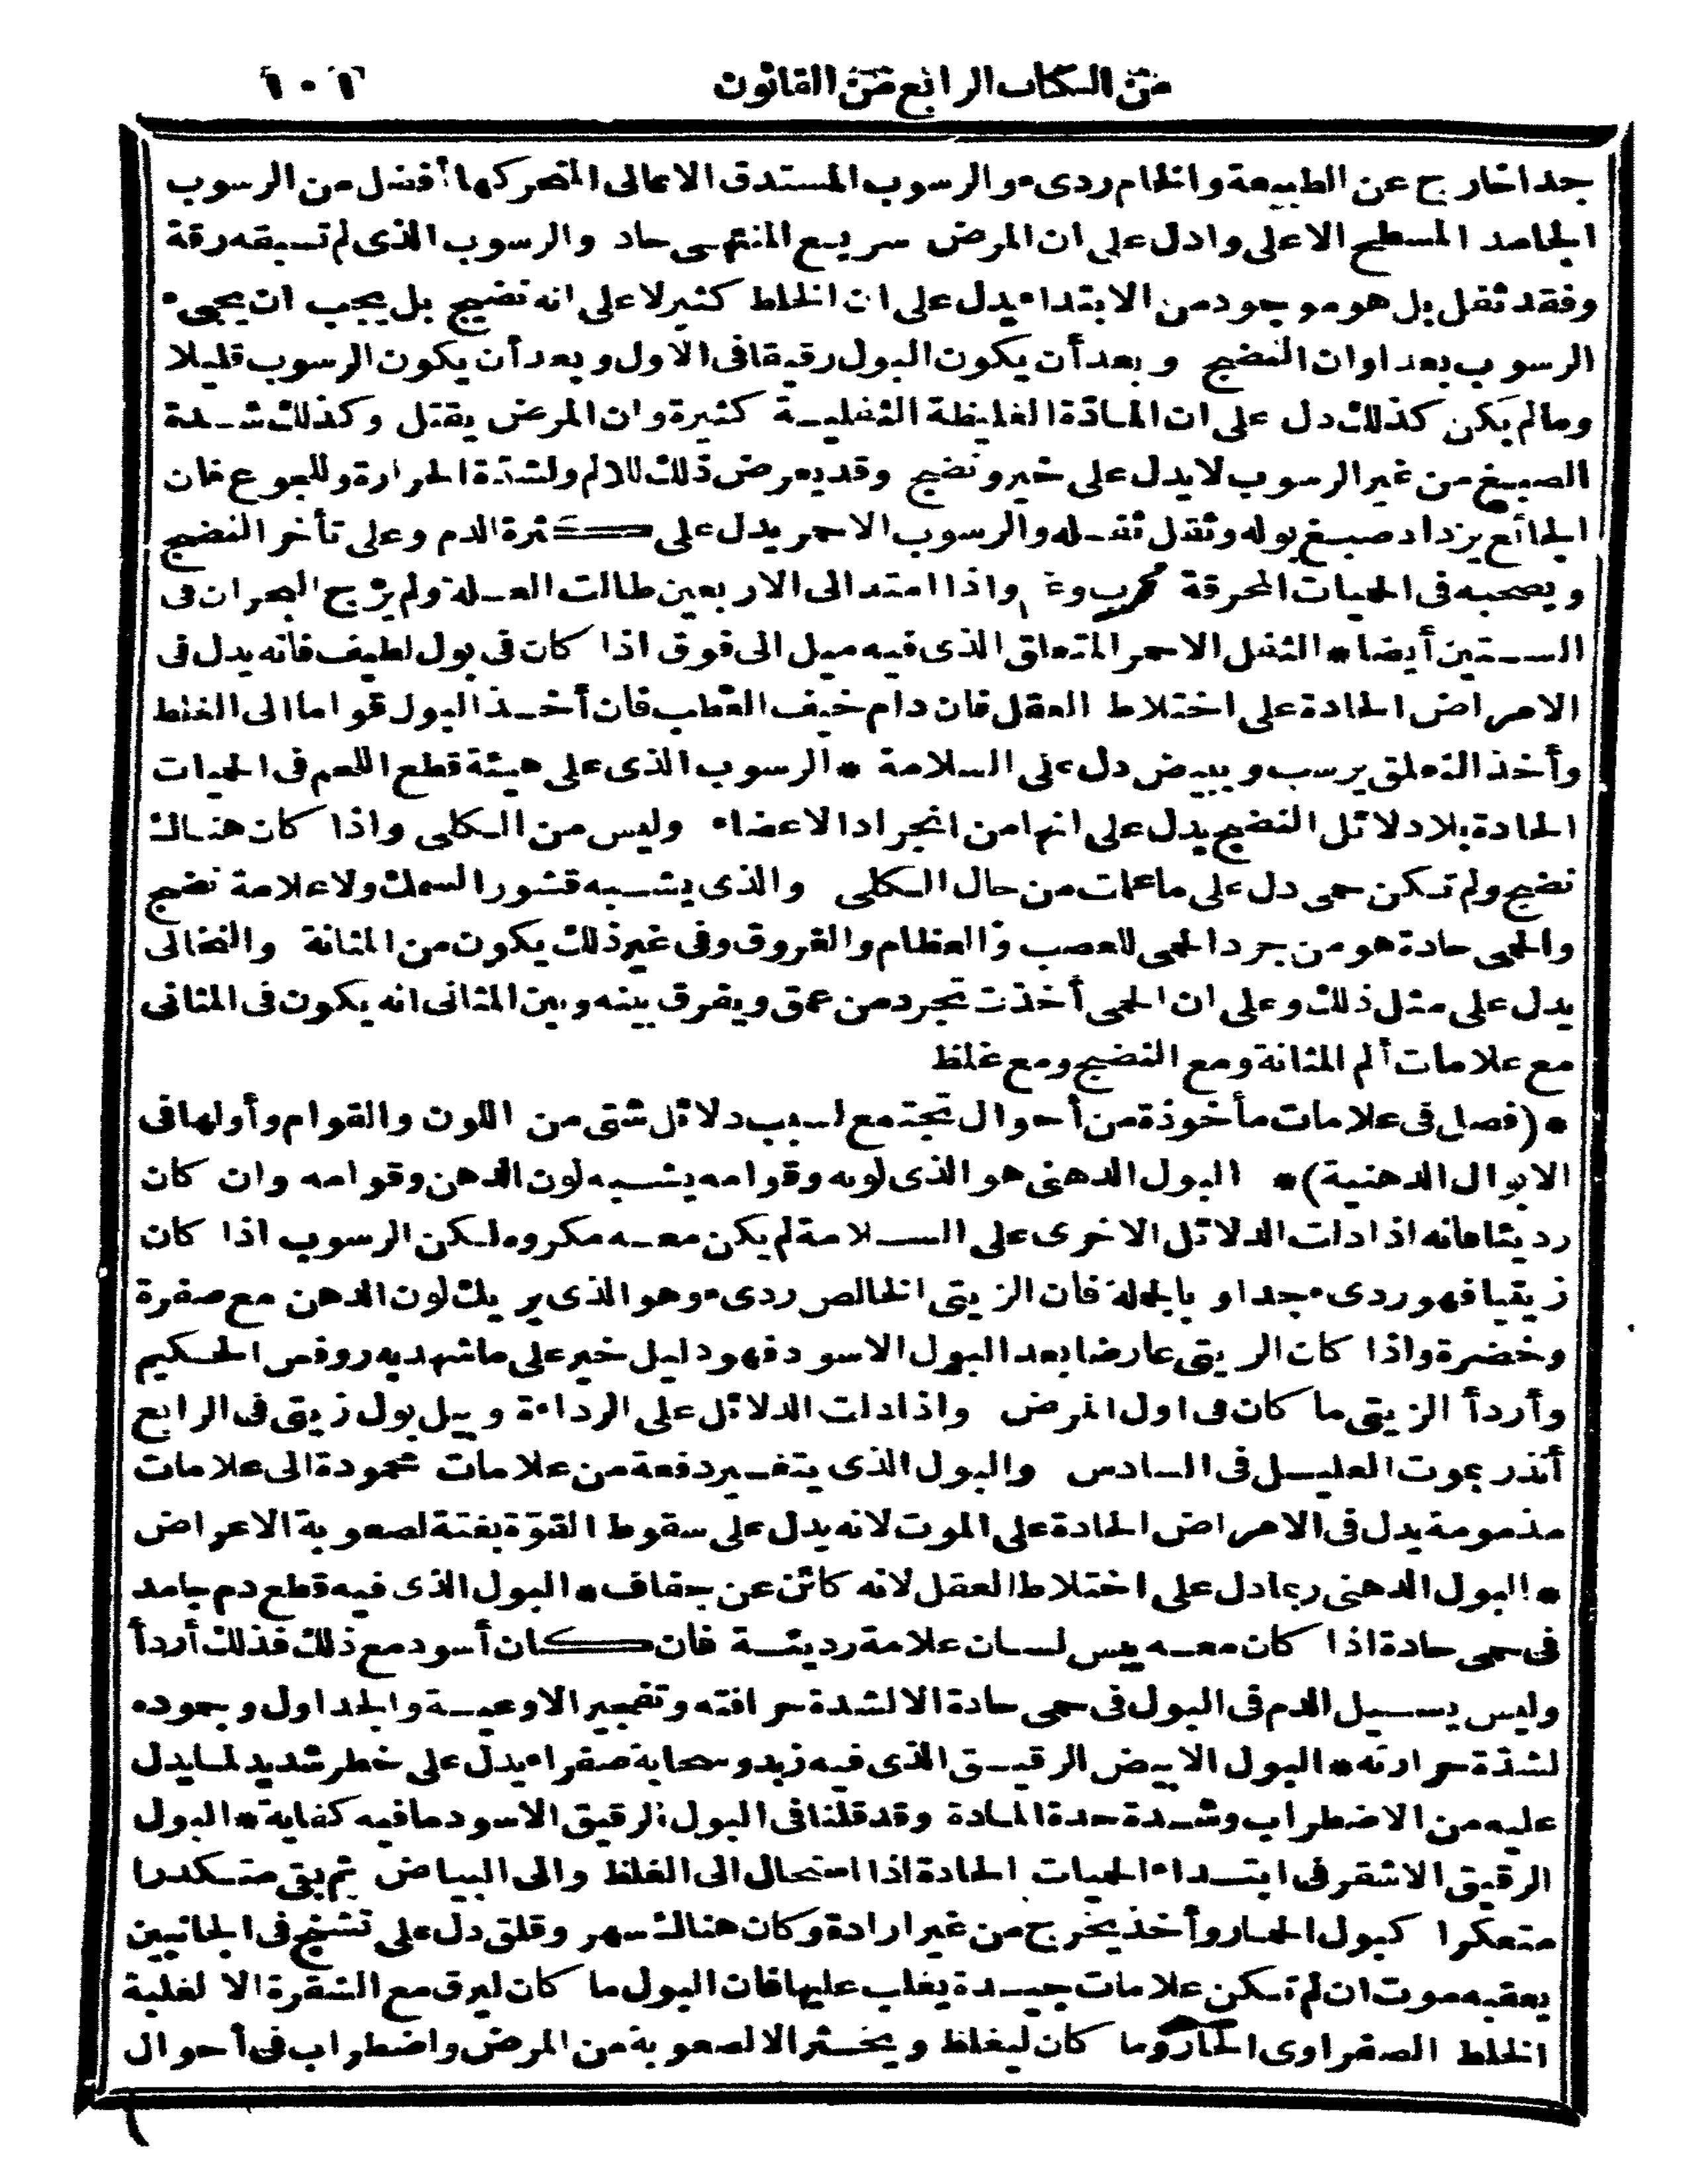 من الكتاب الرابع من القانون ١٠١
جدا خارج عن الطبيعة والخام ردىء والرسوب المستدق الاعالى المتحركها أفضل من الرسوب
الجامد المسطح الاعلى وادل على ان المرض سريع المنتهى حاد والرسوب الذى لم تسبقه رقة
وفقد ثفل بل هو موجود من الابتداء يدل على ان الخلط كثير لا على انه نضيج بل يجب ان يجىء
الرسوب بعد اوان النضج وبعد أن يكون البول رقيقا فى الاول وبعد أن يكون الرسوب قليلا
ومالم يكن كذلك دل على ان المادّة الغليظة الثفلية كثيرة وان المرض يقتل وكذلك شدة
الصبغ من غير الرسوب لا يدل على خير ونضج وقد يعرض ذلك للالم ولشدّة الحرارة وللجوع فان
الجائع يزداد صبغ بوله وثقل ثفله والرسوب الاحمر يدل على كثرة الدم وعلى تأخر النضج
ويصحبه فى الحميات المحرقة كرب وغم واذا امتد الى الاربعين طالت العلة ولم يرج البحران فى
الستين أيضا * الثفل الاحمر المتعلق الذى فيه ميل الى فوق اذا كان فى بول لطيف فانه يدل فى
الامراض الحادة على اختلاط العقل فان دام خيف العطب فان أخذ البول قواما الى الغلظ
وأخذ التعلق يرسب ويبيض دل على السلامة * الرسوب الذى على هيئة قطع اللحم فى الحميات
الحادة بلا دلائل النضج يدل على انها من انجراد الاعضاء وليس من الكلى واذا كان هناك
نضج ولم تكن حمى دل على ما علمت من حال الكلى والذى يشبه قشور السمك ولا علامة نضج
والحمى حادة هو من جرد الحمى للعصب والعظام والعروق وفى غير ذلك يكون من المثانة والنخالى
يدل على مثل ذلك وعلى ان الحمى أخذت تجرد من عمق ويفرق بينه وبين المثانى انه يكون فى المثانى
مع علامات ألم المثانة ومع النضج ومع غلظ
* (فصل فى علامات مأخوذة من أحوال تجتمع لسبب دلائل شتى من اللون والقوام وأولها فى
الابوال الدهنية) * البول الدهنى هو الذى لونه وقوامه يشبه لون الدهن وقوامه وان كان
رديئا فانه اذا دلت الدلائل الاخرى على السلامة لم يكن معه مكروه لكن الرسوب اذا كان
زيتيا فهو ردىء جدا وبالجملة فان الزيتى الخالص ردىء وهو الذى يريك لون الدهن مع صفرة
وخضرة واذا كان الزيتى عارضا بعد البول الاسود فهو دليل خير على ما شهد به روفس الحكيم
وأردأ الزيتى ما كان فى اول المرض واذا دلت الدلائل على الرداءة وبيل بول زيتى فى الرابع
أنذر بموت العليل فى السادس والبول الذى يتغير دفعة من علامات محمودة الى علامات
مذمومة يدل فى الامراض الحادة على الموت لانه يدل على سقوط القوّة بغتة لصعوبة الاعراض
* البول الدهنى ربما دل على اختلاط العقل لانه كائن عن جفاف * البول الذى فيه قطع دم جامد
فى حمى حادة اذا كان معه يبس لسان علامة رديئة فان كان أسود مع ذلك فذلك أردأ
وليس يسيل الدم فى البول فى حمى حادة الا لشدة حرافته وتفجير الاوعية والجداول وجموده
لشدّة حرارته * البول الابيض الرقيق الذى فيه زبد وسحابة صفراء يدل على خطر شديد لما يدل
عليه من الاضطراب وشدة حدة المادة وقد قلنا فى البول الرقيق الاسود ما فيه كفاية * البول
الرقيق الاشقر فى ابتداء الحميات الحادة اذا استحال الى الغلظ والى البياض ثم بقى متكدرا
متعكرا كبول الحمار وأخذ يخرج من غير ارادة وكان هناك سهر وقلق دل على تشنج فى الجانبين
يعقبه موت ان لم تكن علامات جيدة يغلب عليها فان البول ما كان ليرق مع الشقرة الا لغلبة
الخلط الصفراوى الحار وما كان ليغلظ ويخثر الا لصعوبة من المرض واضطراب فى أحوال